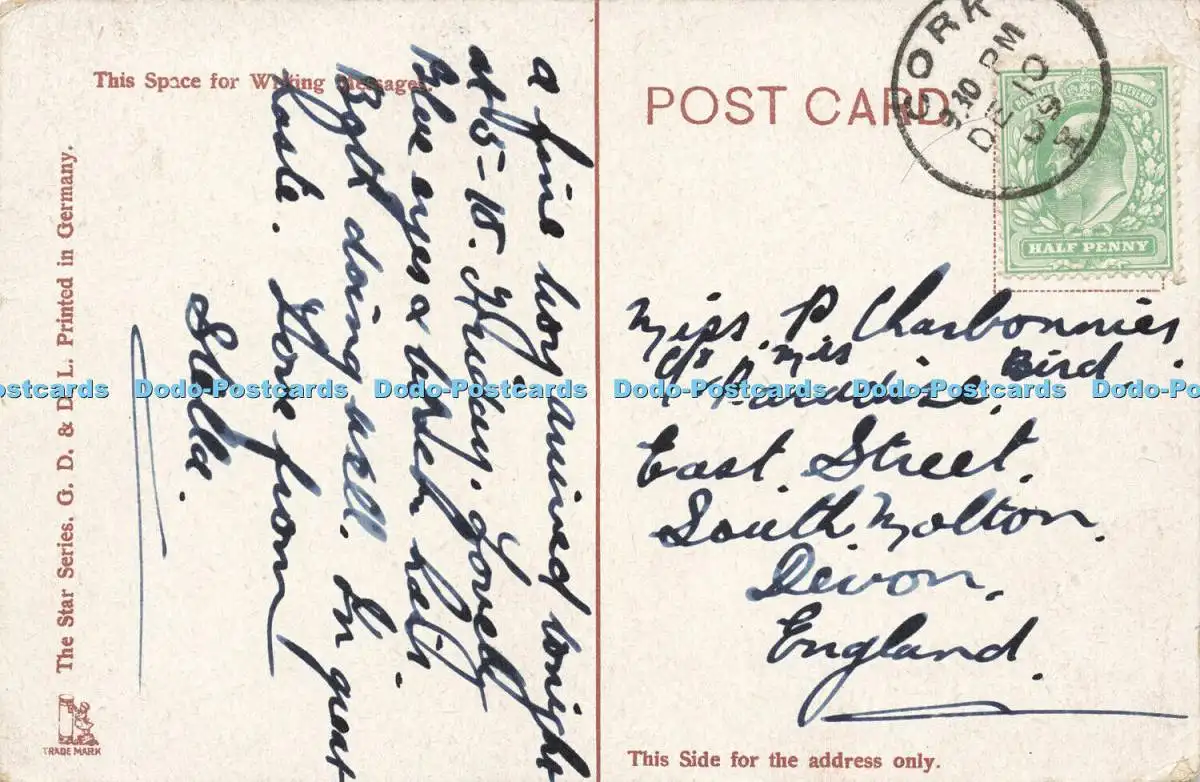 This Space for Writing Messages.
a fine boy arrived tonight
at 5-15. Friday. Lovely
Blue eyes & dark hair.
Both doing well. In great
haste. Love from
Stella.
The Star Series. G. D. & D. L. Printed in Germany.
TRADE MARK
POST CARD.
CORK
9.30 PM
DE 10
09
POSTAGE REVENUE
HALF PENNY
Miss. P. Charbonnier.
c/o Mrs Bird.
Paradise.
East. Street.
South. Molton.
Devon.
England.
This Side for the address only.
Dodo-Postcards Dodo-Postcards Dodo-Postcards Dodo-Postcards Dodo-Postcards Dodo-Postcards